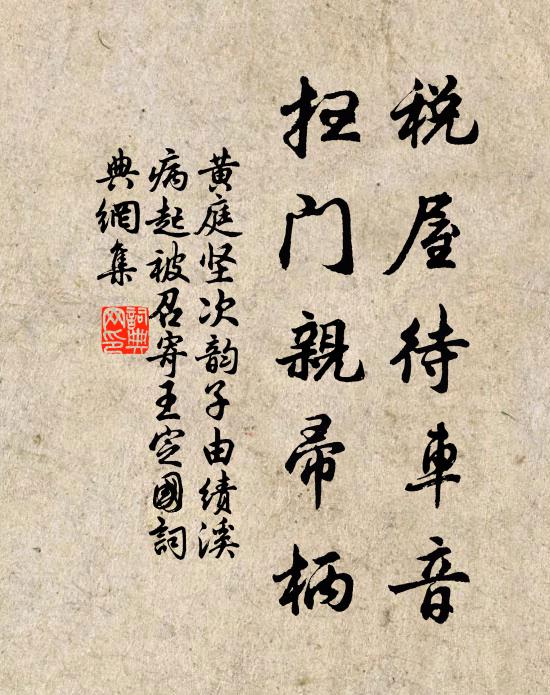 税屋待車音
扫门親帚柄
黄庭坚次韵子由绩溪
病起被召寄王定國詞
典網集
詞典
网印